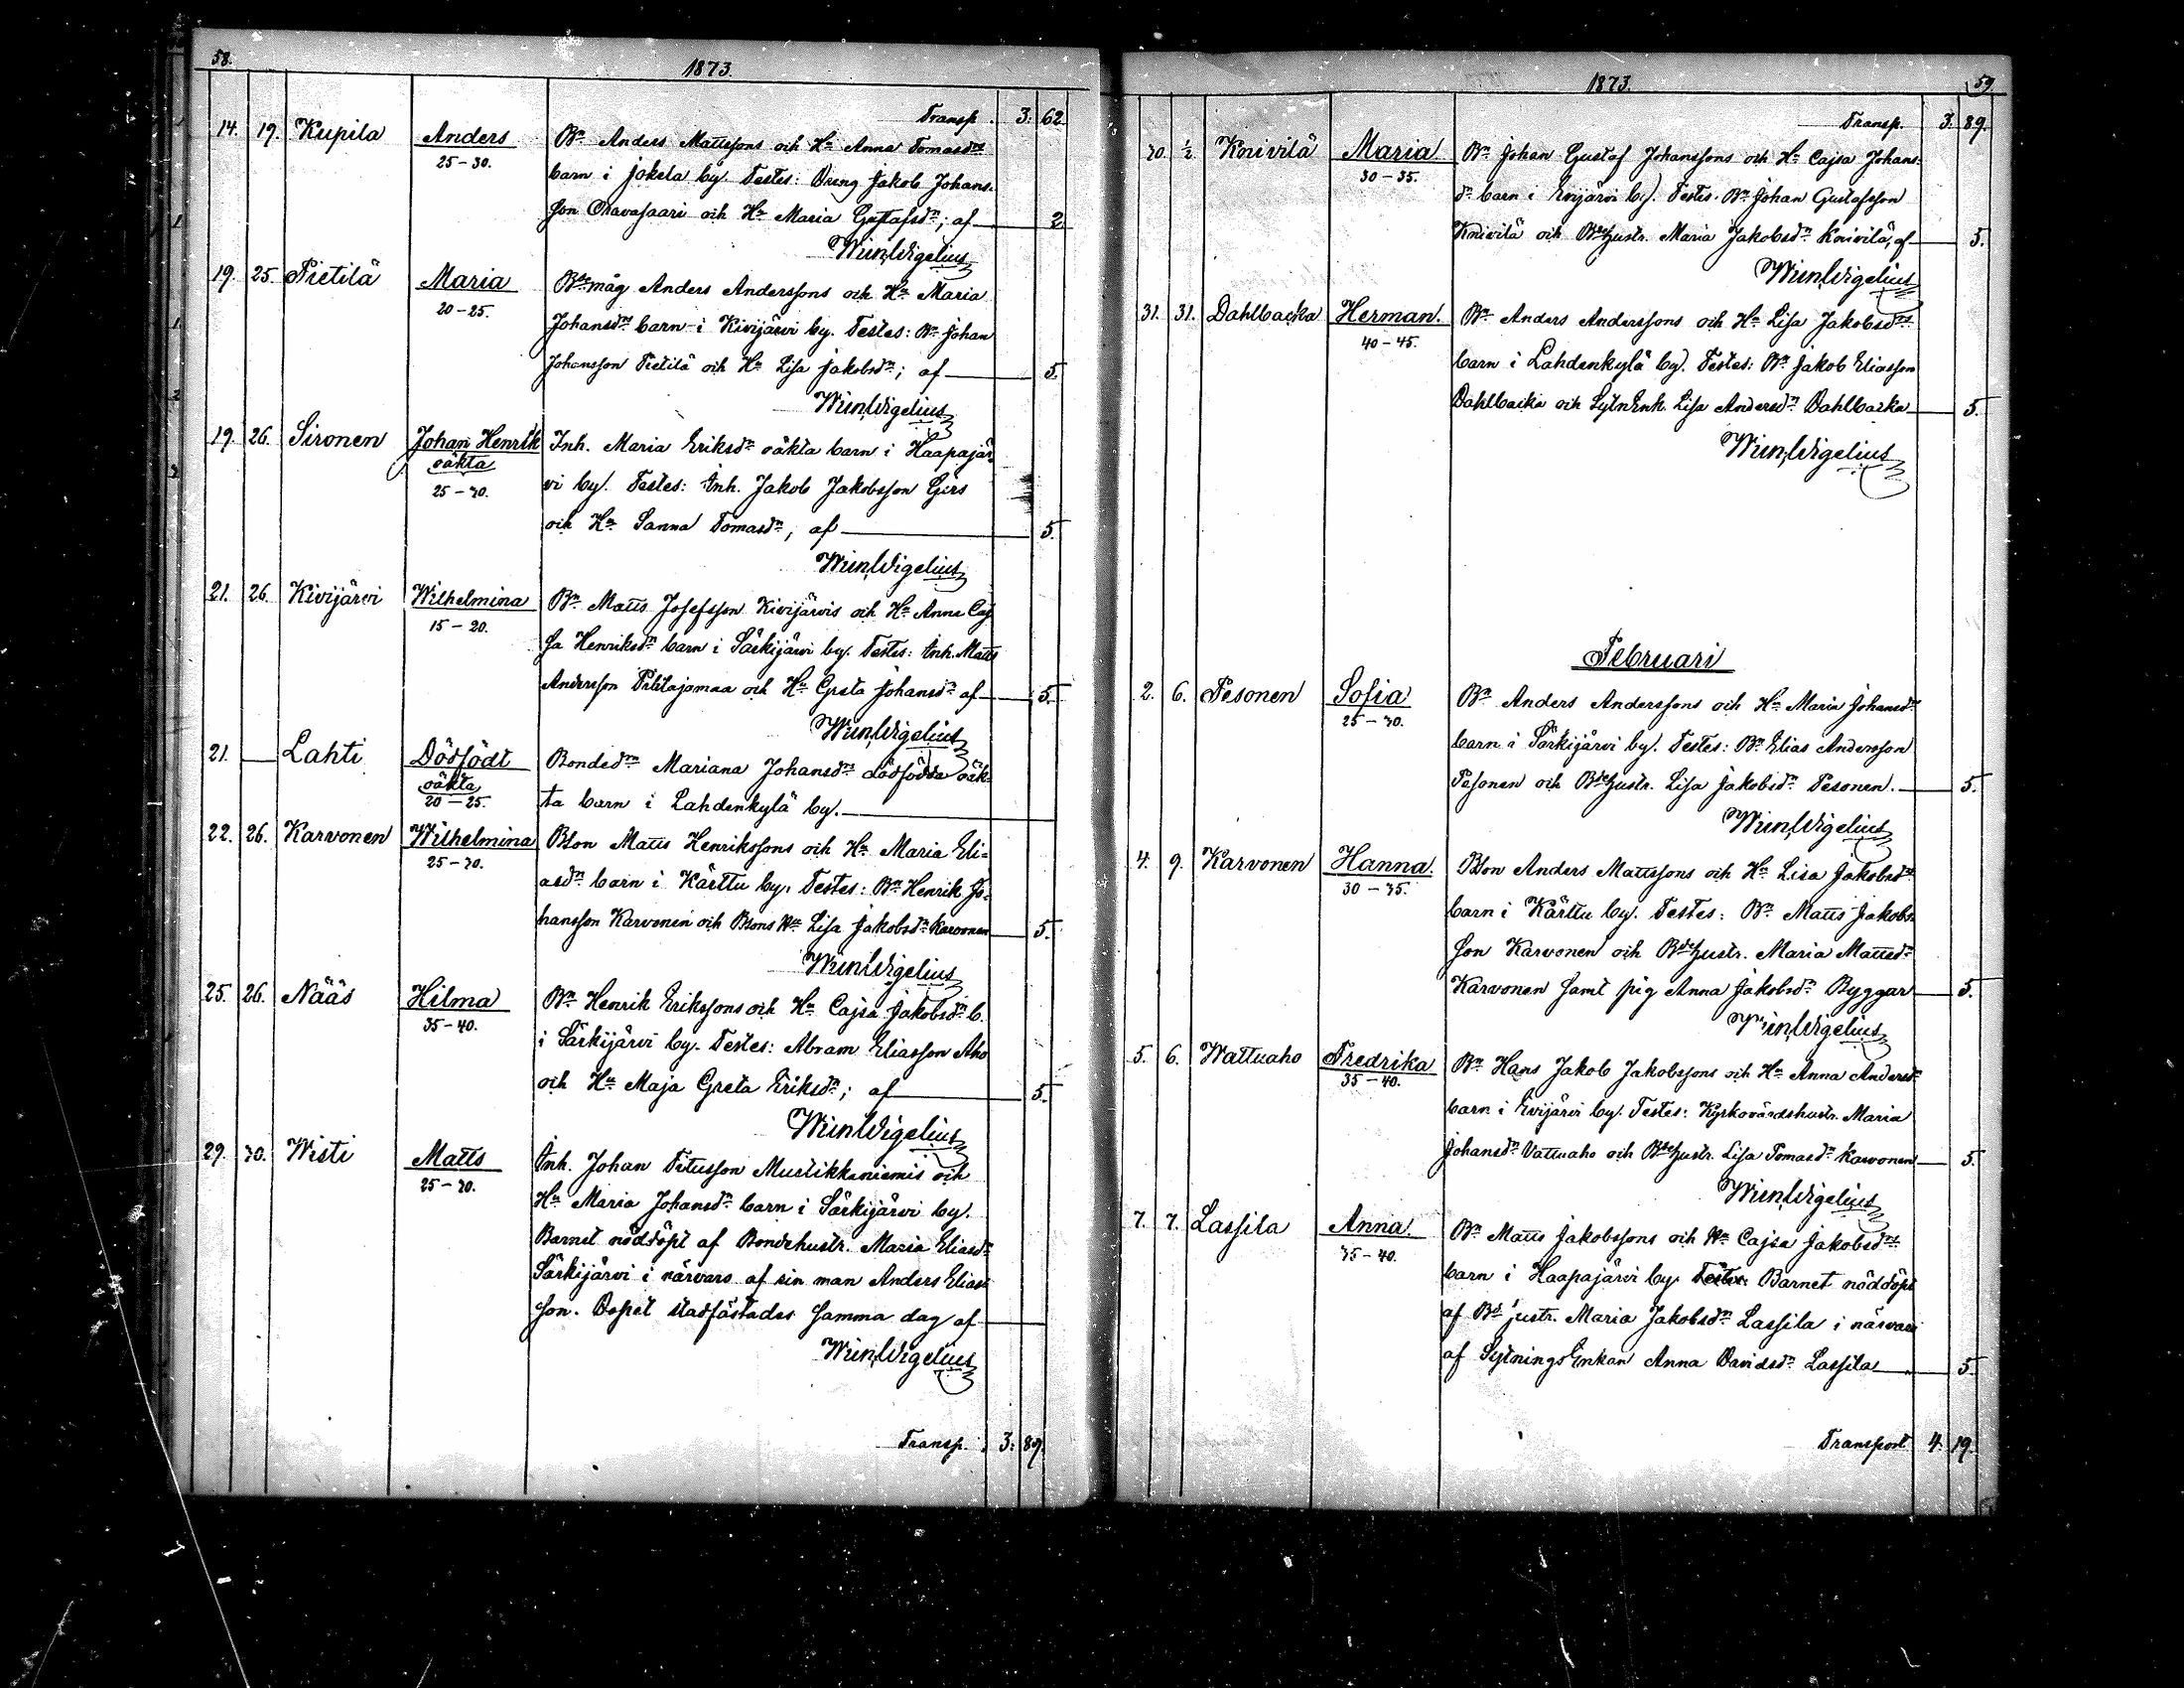 58.
1873.
Transp. 3. 62.
14. 19. Kupila Anders Bn Anders Mattssons och Hu Anna Tomasdrs
25-30. barn i Jokela by. Testes: Dreng Jakob Johans-
son Oravasaari och Hu Maria Gustafsdr; af 2.
Wigelius
19. 25. Pietilä Maria Bdemåg Anders Anderssons och Hu Maria
20-25. Johansdrs barn i Kivijärvi by. Testes: Bn Johan
Johansson Pietilä och Hu Lisa Jakobsdr; af 5.
Wigelius
19. 26. Sironen Johan Henrik Inh. Maria Eriksdrs oäkta barn i Haapajär-
oäkta vi by. Testes: Inh. Jakob Jakobsson Girs
25-30. och Hu Sanna Tomasdr, af 5.
Wigelius
21. 26. Kivijärvi Wilhelmina Bn Matts Josefsson Kivijärvis och Hu Anna Caj-
15-20. sa Henriksdrs barn i Särkijärvi by. Testes: Inh. Matts
Andersson och Hu Greta Johansdr af 5.
Wigelius
21. Lahti Dödfödt Bondedrs Mariana Johansdrs dödfödda oäk-
oäkta ta barn i Lahdenkylä by.
20-25.
22. 26. Karvonen Wilhelmina Bson Matts Henrikssons och Hu Maria Eli=
25-30. asdrs barn i Kärttu by. Testes: Bn Henrik Jo-
hansson Karvonen och Bsons Hu Lisa Jakobsdr Karvonen 5.
Wigelius
25. 26. Nääs Hilma Bn Henrik Erikssons och Hu Cajsa Jakobsdrs b.
35-40. i Särkijärvi by. Testes: Abram Eliasson Aho
och Hu Maja Greta Eriksdr; af 5.
Wigelius
29. 30. Wisti Matts Inh. Johan Titusson Mustikkaniemis och
25-30. Hu Maria Johansdrs barn i Särkijärvi by.
Barnet nöddöpt af Bondehustr. Maria Eliasdr
Särkijärvi i närvaro af sin man Anders Elias-
son. Dopet stadfästades samma dag af
Wigelius
Transp. 3. 89.
59.
1873.
Transp. 3. 89.
30. 1/2 Knivilä Maria Bn Johan Gustaf Johanssons och Hu Cajsa Johans-
30-35. drs barn i Evijärvi by. Testes: Bn Johan Gustafsson
Knivilä och Bdehustr. Maria Jakobsdr Knivilä, af 5.
Wigelius
31. 31. Dahlbacka Herman. Bn Anders Anderssons och Hu Lisa Jakobsdrs
40-45. barn i Lahdenkylä by. Testes: Bn Jakob Eliasson
Dahlbacka och SytnEnk. Lisa Andersdr Dahlbacka 5.
Wigelius
Februari
2. 6. Pesonen Sofia Bn Anders Anderssons och Hu Maria Johansdrs
25-30. barn i Särkijärvi by. Testes: Bn Elias Andersson
Pesonen och Bdehustr. Lisa Jakobsdr Pesonen. 5.
Wigelius
4. 9. Karvonen Hanna. Bson Anders Mattssons och Hu Lisa Jakobsdrs
30-35. barn i Kärttu by. Testes: Bn Matts Jakobs-
son Karvonen och Bdehustr. Maria Mattsdr
Karvonen samt pig Anna Jakobsdr Byggar 5.
Wigelius
5. 6. Wattuaho Fredrika Bn Hans Jakob Jakobssons och Hu Anna Andersdrs
35-40. barn i Evijärvi by. Testes: Kyrkovärdshustr. Maria
Johansdr Vattuaho och Bdehustr. Lisa Tomasdr Karvonen 5.
Wigelius
7. 7. Lassila Anna. Bn Matts Jakobssons och Hu Cajsa Jakobsdrs
35-40. barn i Haapajärvi by. Testes: Barnet nöddöpt
af Bdehustr. Maria Jakobsdr Lassila i närvaro
af SytningsEnkan Anna Davidsdr Lassila 5.
Transport 4. 19.